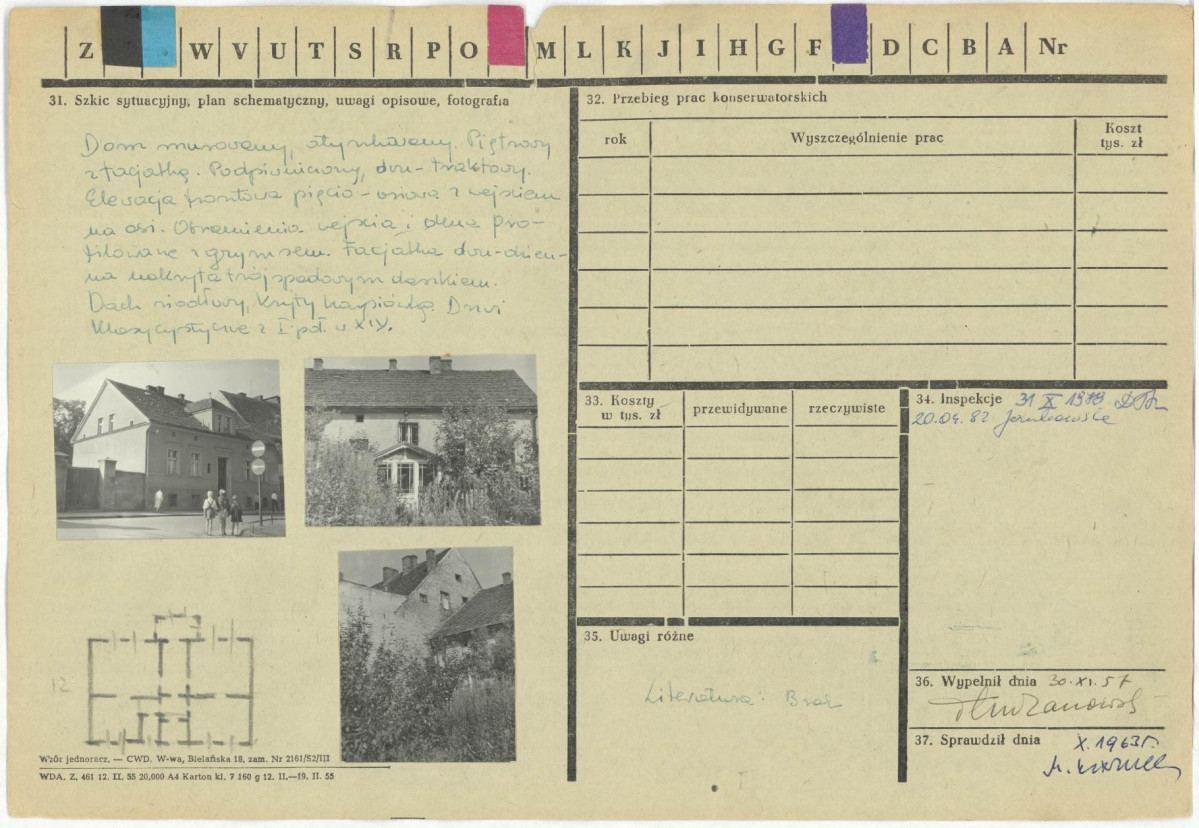 Z W V U T S R P O M L K J I H G F D C B A Nr
31. Szkic sytuacyjny, plan schematyczny, uwagi opisowe, fotografia
Dom murowany, otynkowany. Piętrowy
z facjatką. Podpiwniczony, dwu-traktowy.
Elewacja frontowa pięcio-osiowa z wejściem
na osi. Obramienia wejścia i okna pro-
filowane z grymsem. Facjatka dwu-okien-
na nakryta trójspadowym daszkiem.
Dach siodłowy, kryty karpiówką. Drzwi
klasycystyczne z I poł. w XIX.
12
Wzór jednoracz. — CWD. W-wa, Bielańska 18, zam. Nr 2161/52/III
WDA. Z. 461 12. II. 55 20,000 A4 Karton kl. 7 160 g 12. II.—19. II. 55
32. Przebieg prac konserwatorskich
rok Wyszczególnienie prac Koszt
tys. zł
33. Koszty
w tys. zł przewidywane rzeczywiste
34. Inspekcje 31 X 1978
20.04.82
35. Uwagi różne
Literatura: Brak
36. Wypełnił dnia 30.XI.57
37. Sprawdził dnia X.1963r.